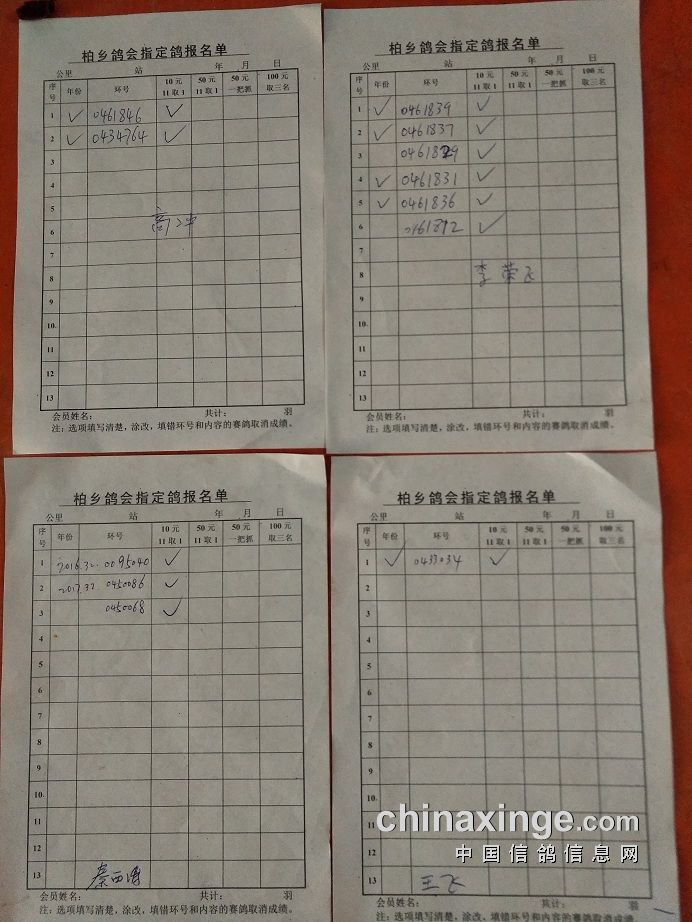 柏乡鸽会指定鸽报名单
公里 站 年 月 日
序号 年份 环号 10元11取1 50元11取1 50元一把抓 100元取三名
1 ✓ 0461846 ✓
2 ✓ 0434764 ✓
3
4
5
6
7
8
9
10
11
12
13
会员姓名: 共计: 羽
注:选项填写清楚,涂改,填错环号和内容的赛鸽取消成绩。
柏乡鸽会指定鸽报名单
公里 站 年 月 日
序号 年份 环号 10元11取1 50元11取1 50元一把抓 100元取三名
1 ✓ 0461839 ✓
2 ✓ 0461837 ✓
3 0461829 ✓
4 ✓ 0461831 ✓
5 ✓ 0461836 ✓
6 ✓
7
8 李荣飞
9
10
11
12
13
会员姓名: 共计: 羽
注:选项填写清楚,涂改,填错环号和内容的赛鸽取消成绩。
柏乡鸽会指定鸽报名单
公里 站 年 月 日
序号 年份 环号 10元11取1 50元11取1 50元一把抓 100元取三名
1 2016.32. 0095040 ✓
2 2017.32 0450086 ✓
3 0450068 ✓
4
5
6
7
8
9
10
11
12
13
会员姓名: 共计: 羽
注:选项填写清楚,涂改,填错环号和内容的赛鸽取消成绩。
柏乡鸽会指定鸽报名单
公里 站 年 月 日
序号 年份 环号 10元11取1 50元11取1 50元一把抓 100元取三名
1 ✓ 0433034 ✓
2
3
4
5
6
7
8
9
10
11
12
13 王飞
会员姓名: 共计: 羽
注:选项填写清楚,涂改、填错环号和内容的赛鸽取消成绩。
chinaxinge.com
中国信鸽信息网